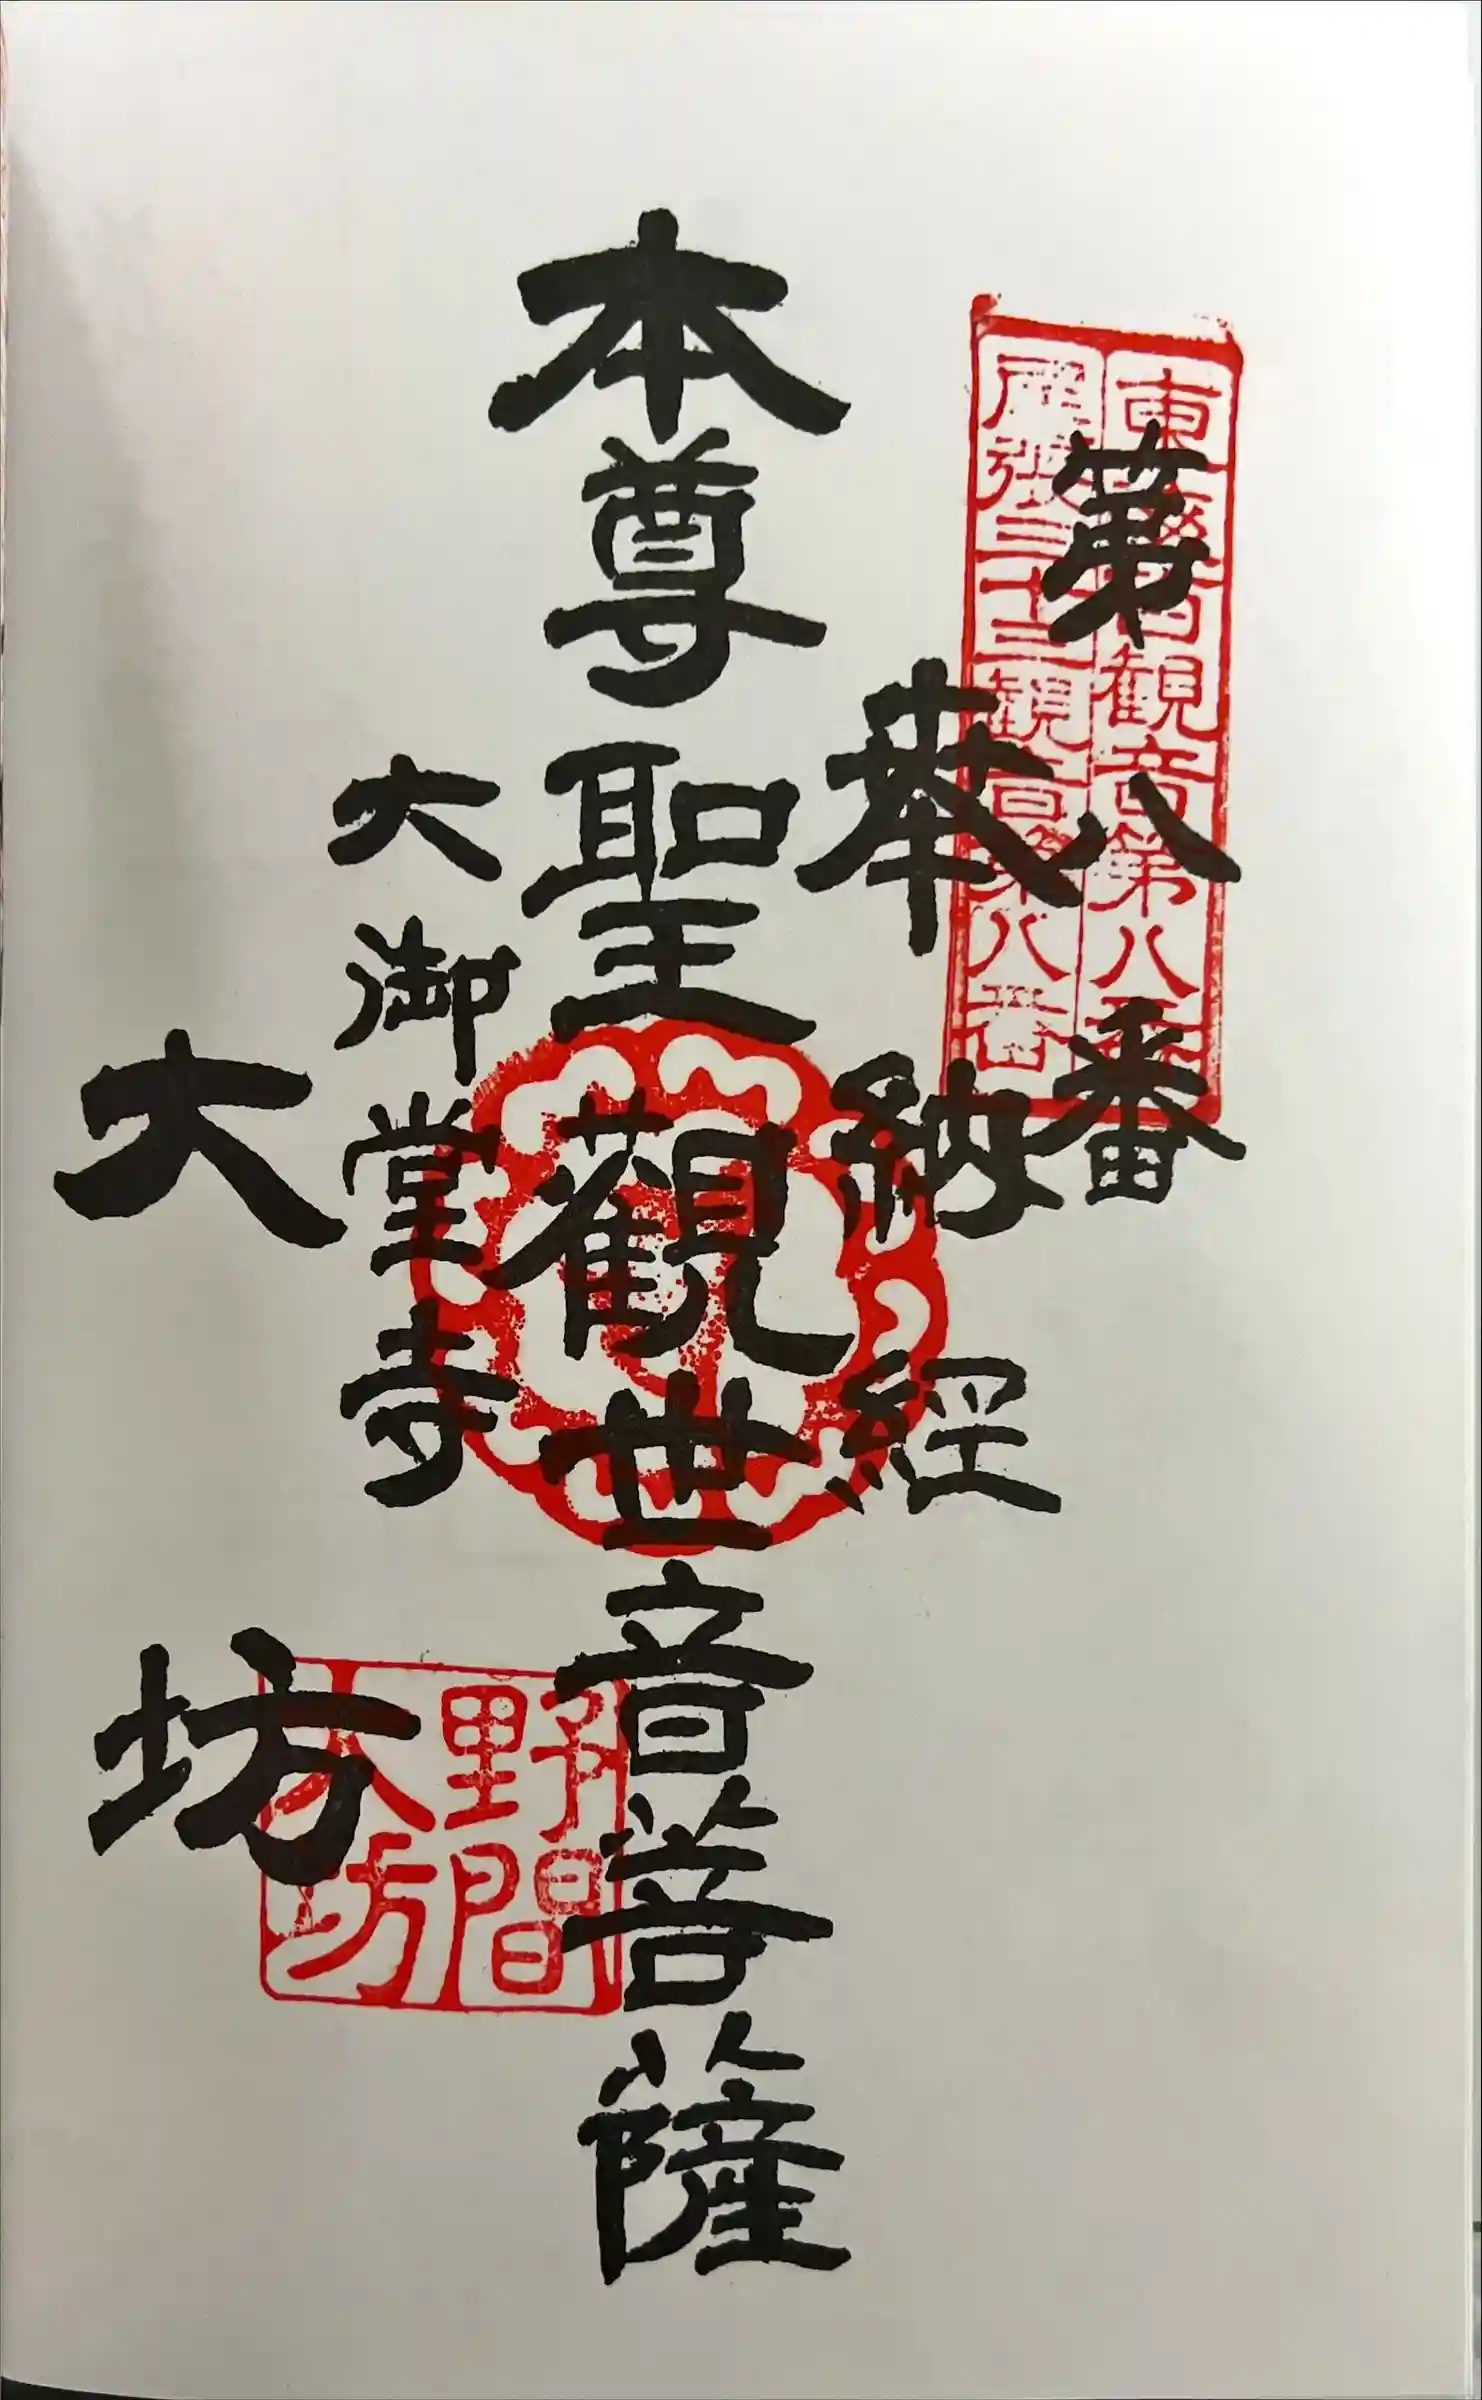 東海百観音第八番
尾張三十三観音第八番
第八番
奉納経
本尊聖觀世音菩薩
大御堂寺
大坊
野間
大坊